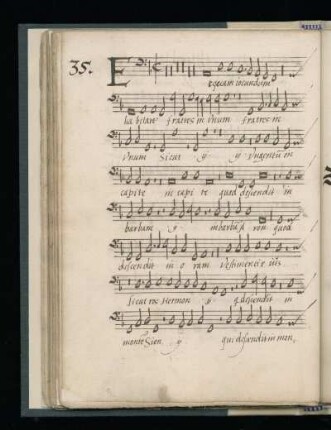 35.
E
habitare fratres in vnum fratres in
vnum Sicut y y vngentũ in
capite in capi te quod descendit in
barbam y in barbã A ron quod
descendit in o ram vestimenti e ius
Sicut ros Hermon y q descendit in
montẽ Sion y qui descendit in mon,